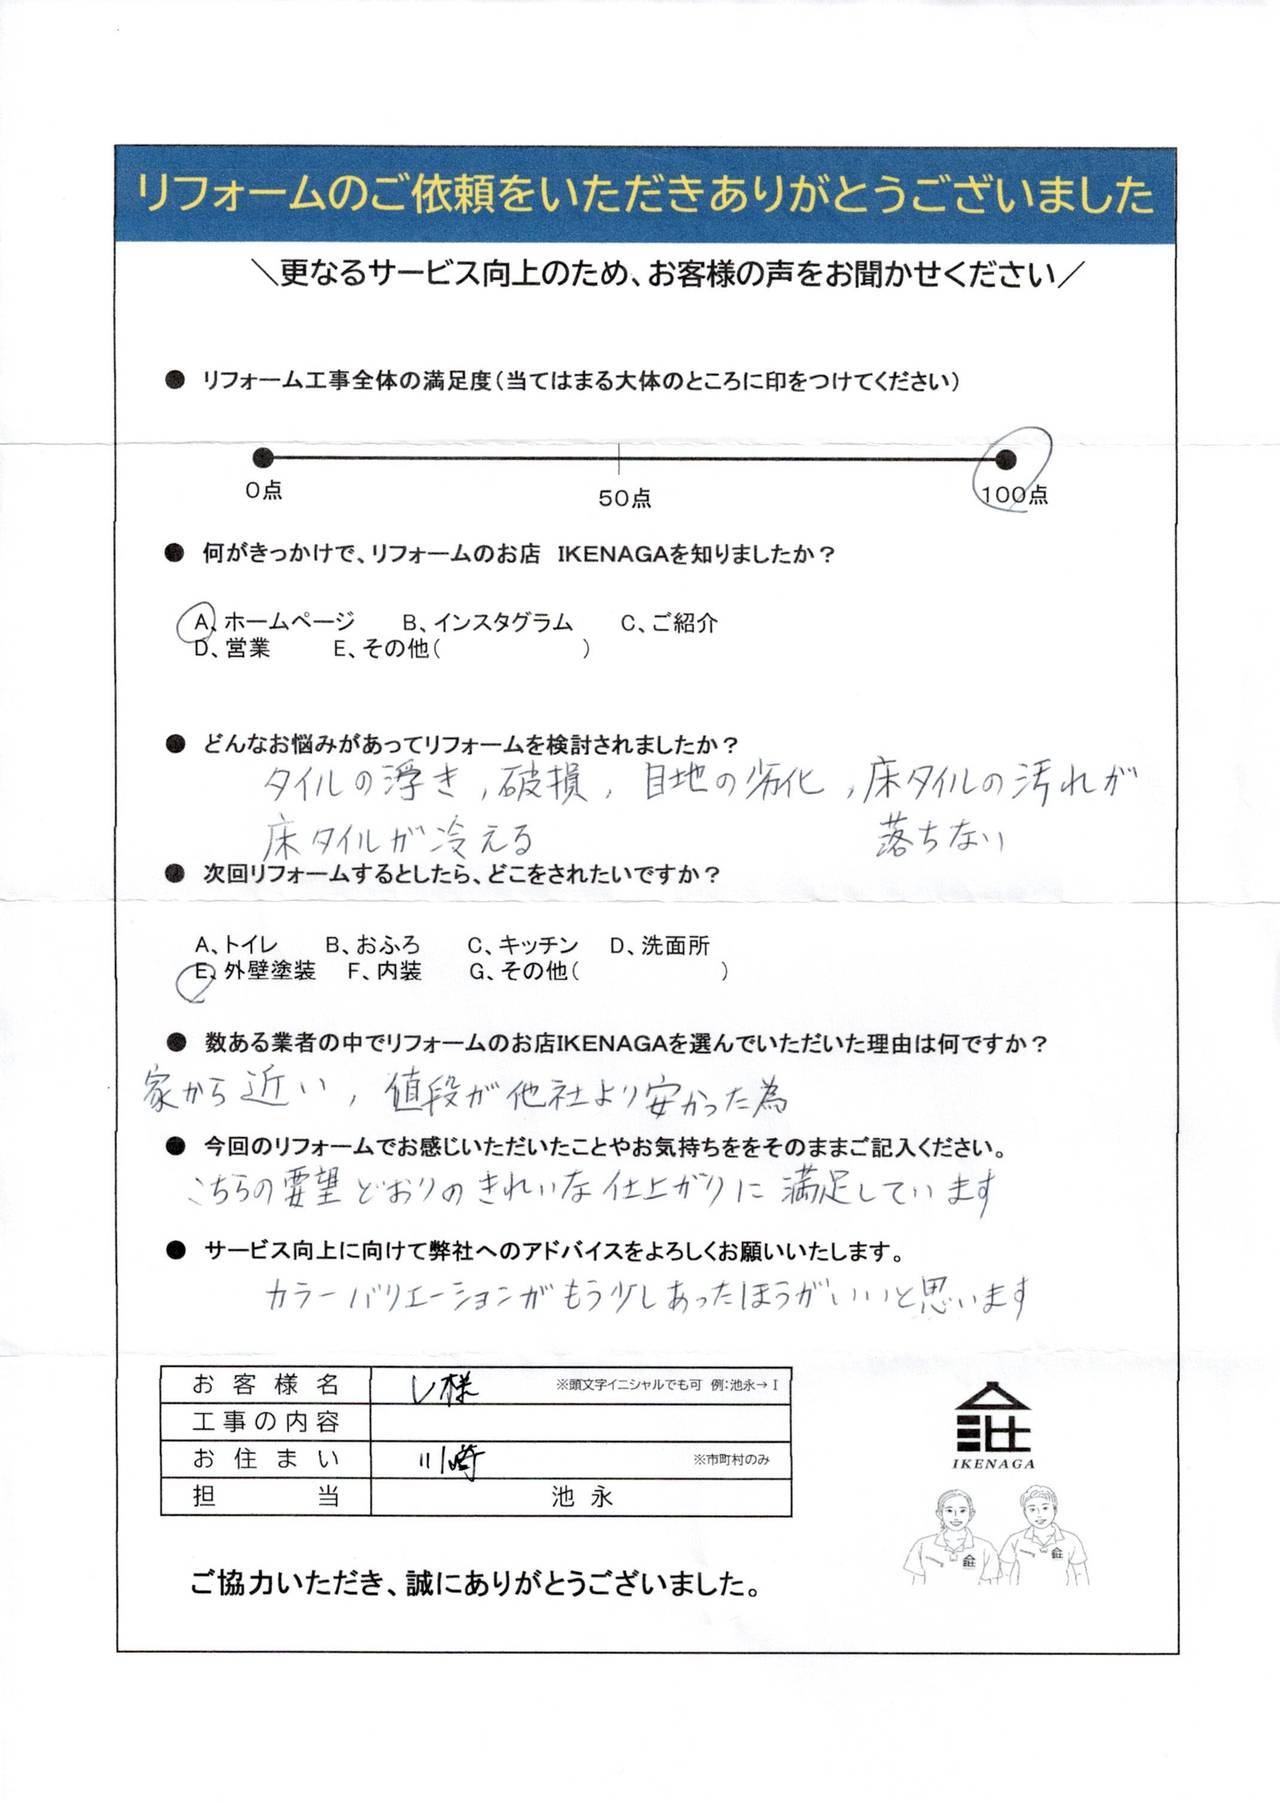 リフォームのご依頼をいただきありがとうございました
＼更なるサービス向上のため、お客様の声をお聞かせください／
● リフォーム工事全体の満足度（当てはまる大体のところに印をつけてください）
0点 50点 100点
● 何がきっかけで、リフォームのお店 IKENAGAを知りましたか？
A、ホームページ B、インスタグラム C、ご紹介
D、営業 E、その他（ ）
● どんなお悩みがあってリフォームを検討されましたか？
タイルの浮き，破損，目地の劣化，床タイルの汚れが
落ちない
床タイルが冷える
● 次回リフォームするとしたら、どこをされたいですか？
A、トイレ B、おふろ C、キッチン D、洗面所
E、外壁塗装 F、内装 G、その他（ ）
● 数ある業者の中でリフォームのお店IKENAGAを選んでいただいた理由は何ですか？
家から近い，値段が他社より安かった為
● 今回のリフォームでお感じいただいたことやお気持ちををそのままご記入ください。
こちらの要望どおりのきれいな仕上がりに満足しています
● サービス向上に向けて弊社へのアドバイスをよろしくお願いいたします。
カラーバリエーションがもう少しあったほうがいいと思います
お客様名 様 ※頭文字イニシャルでも可 例：池永→I
工事の内容
お住まい 川崎 ※市町村のみ
担当 池永
IKENAGA
ご協力いただき、誠にありがとうございました。